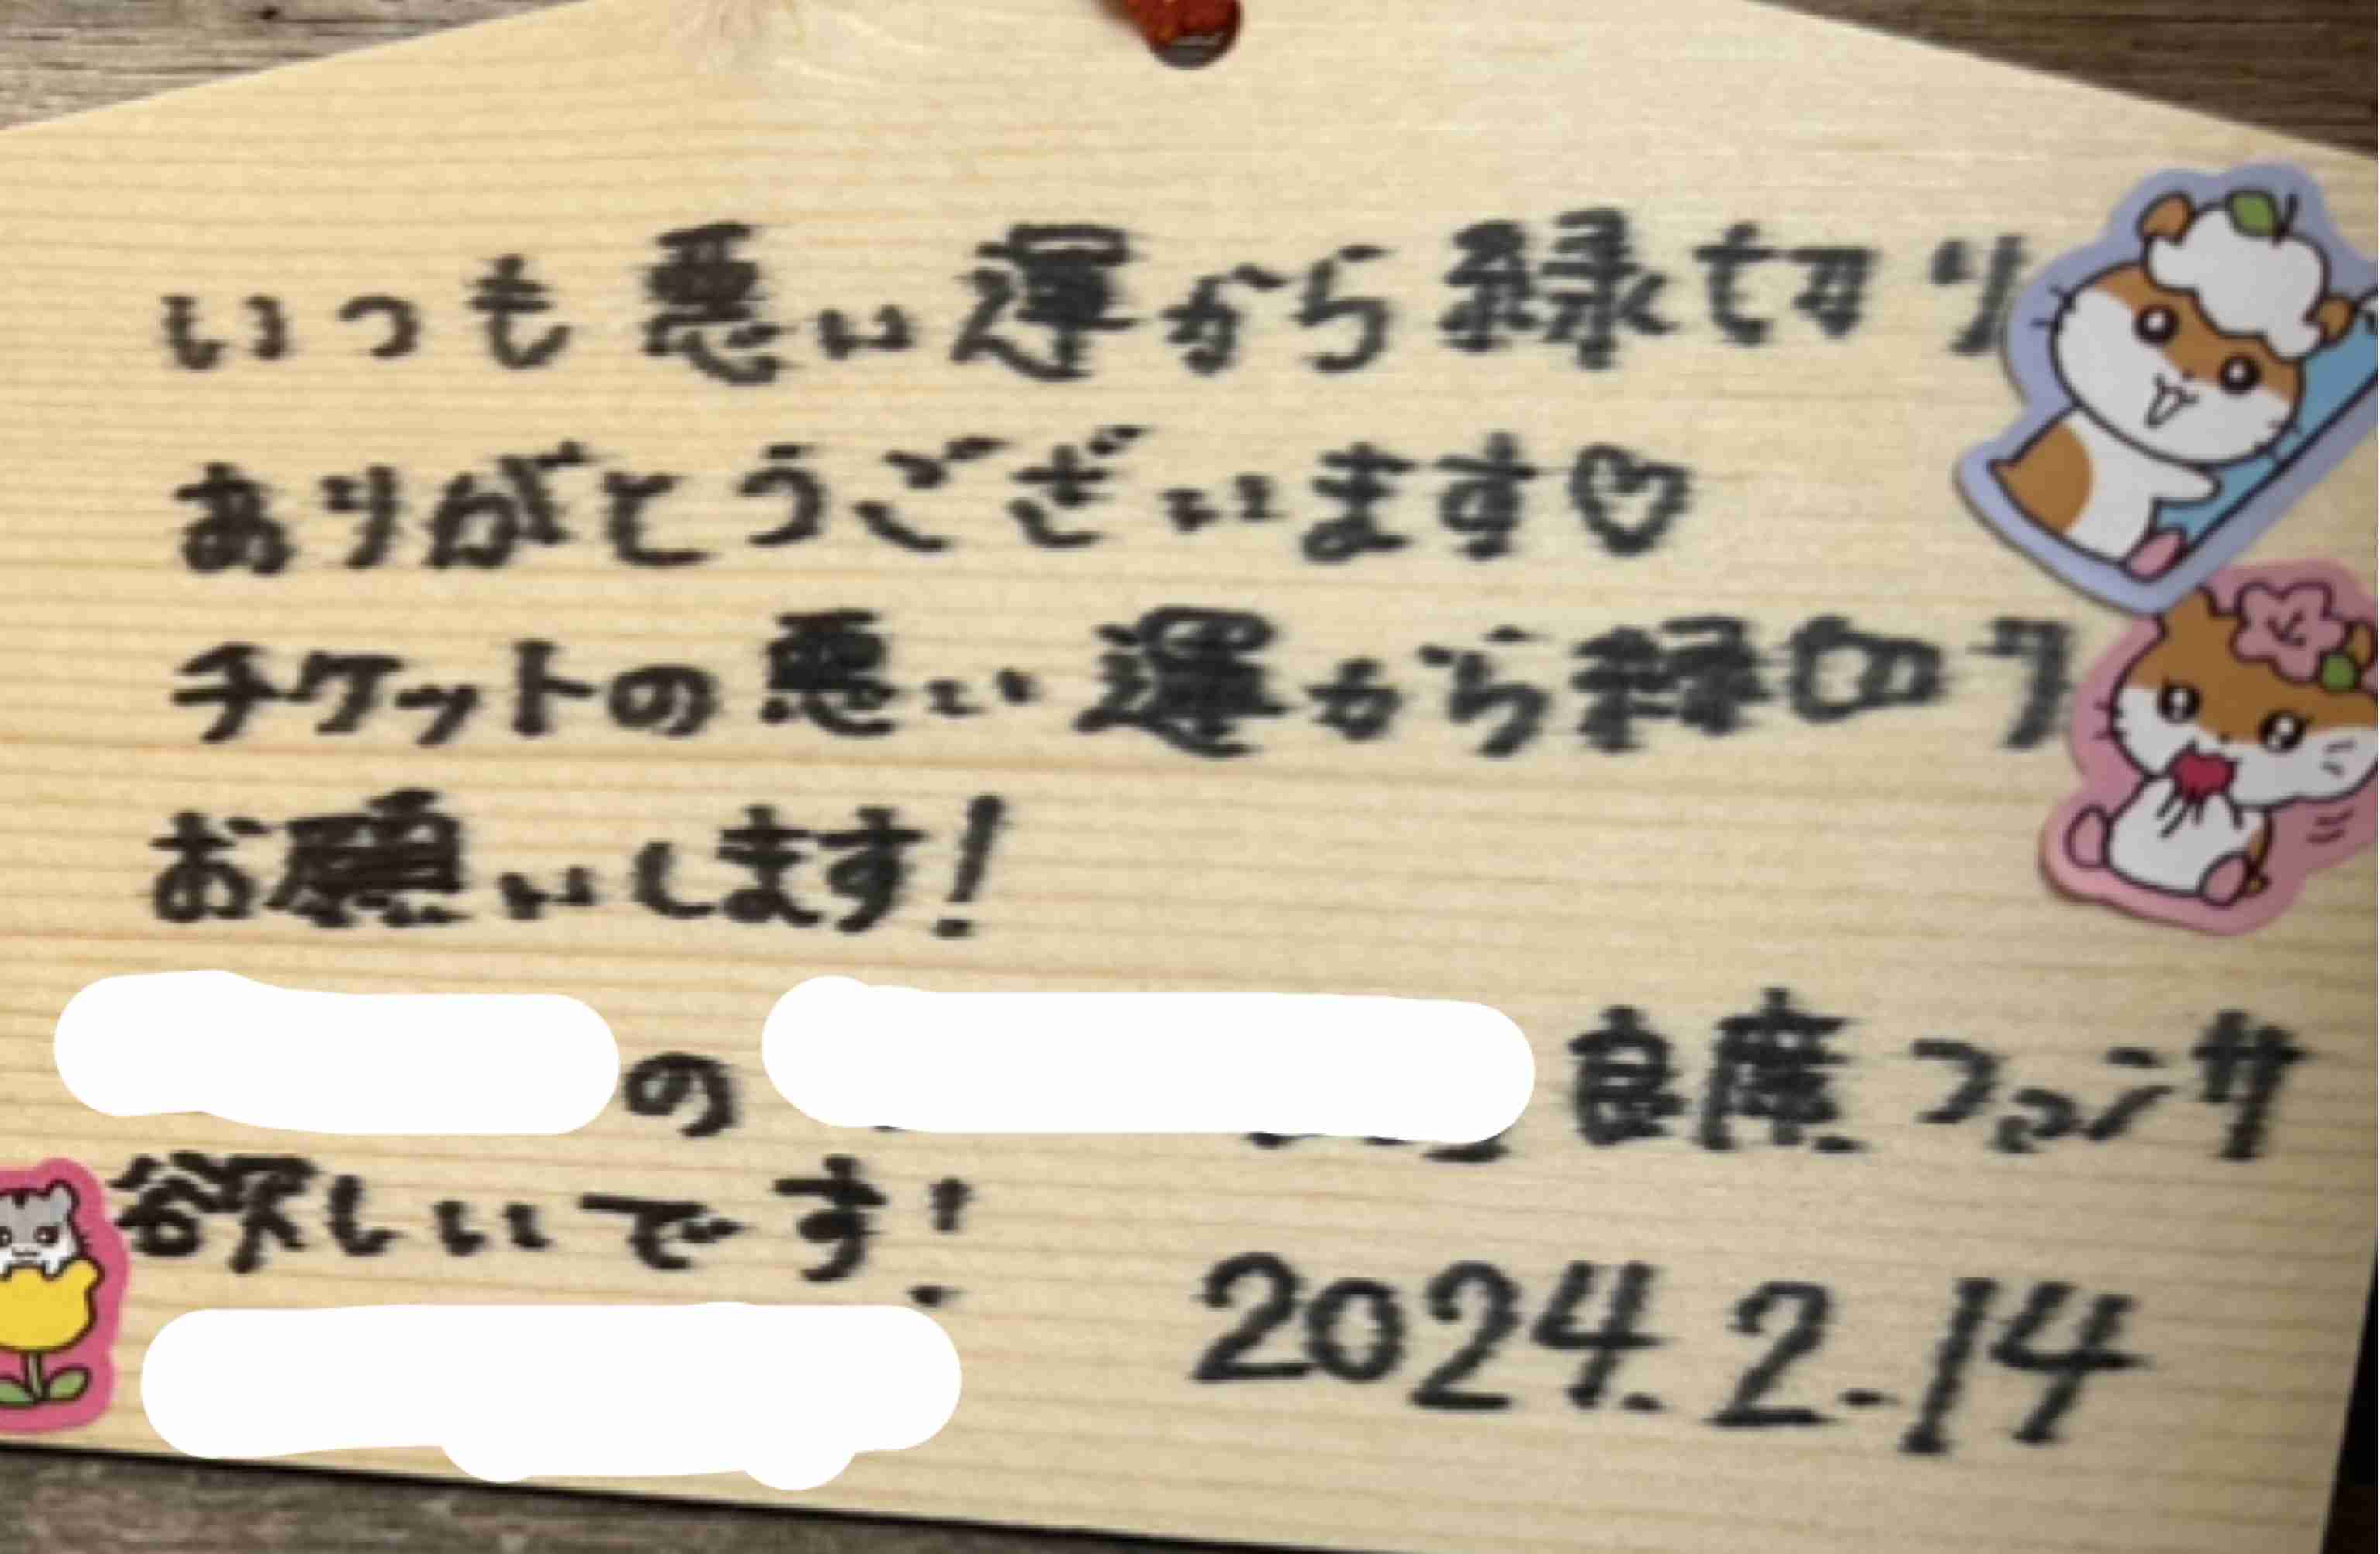 いつも悪い運から縁切り
ありがとうございます♡
チケットの悪い運から縁切り
お願いします!
の 良席ファンサ
欲しいです!
2024.2.14